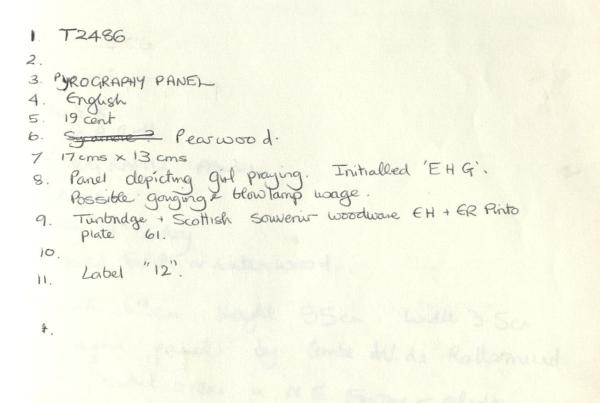 1 T2486
2.
3. PYROGRAPHY PANEL
4. English
5. 19 cent
6. Sycamore? Pearwood.
7 17cms x 13 cms
8. Panel depicting girl praying. Initialled 'E H G'.
Possible gouging & blowlamp usage.
9. Tunbridge + Scottish souvenir woodware EH + ER Pinto
plate 61.
10.
11. Label "12".